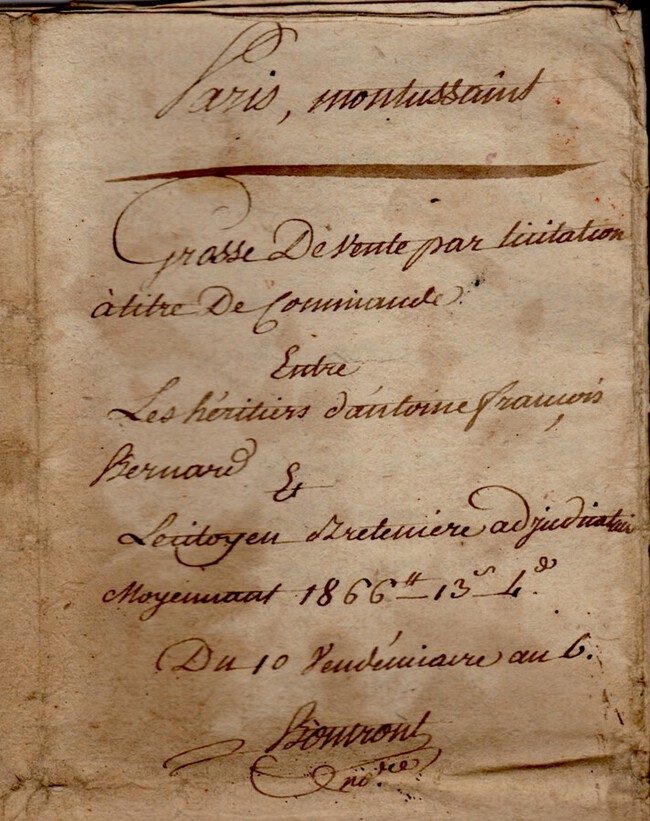 Paris, montussaint
Grosse De Vente par licitation
à titre De Commande
Entre
Les héritiers d'antoine françois
Bernard
Et
Le citoyen Bretenière adjudicataire
Moyennant 1866 tt 13 s 4 d.
Du 10 Vendémiaire an 6.
no.re